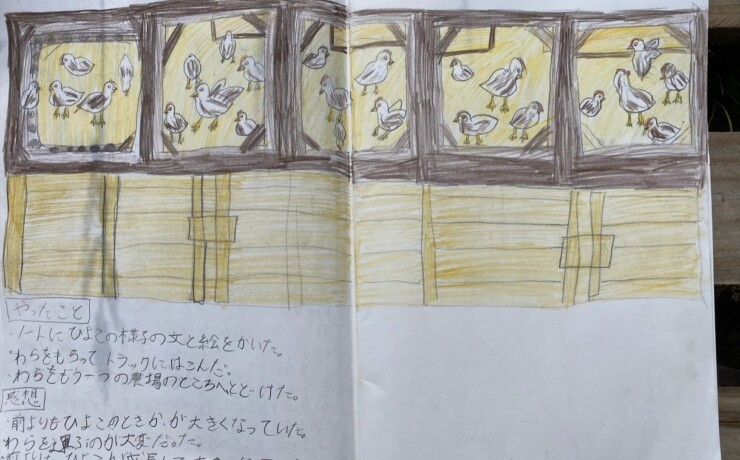 やったこと
・ノートにひよこの様子の文と絵をかいた。
・わらをもらってトラックにはこんだ。
・わらをもう一つの農場のところへとどけた。
感想
・前よりもひよこのとさかが大きくなっていた。
わらを運ぶのが大変だった。